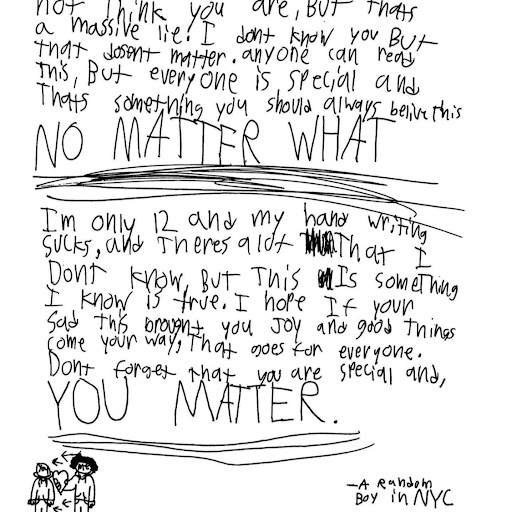 not think you are, BUT thats
a massive lie. I dont know you BuT
that dosent matter. anyone can read
this, But everyone is special and
Thats something you should always belive this
NO MATTER WHAT
Im only 12 and my hand writing
sucks, and Theres a lot That I
Dont know, BUT This Is something
I know is true. I hope If your
Sad this brought you Joy and good Things
come your way, That goes for everyone.
Dont forget that you are special and,
YOU MATTER.
ME
-A Random
Boy in NYC